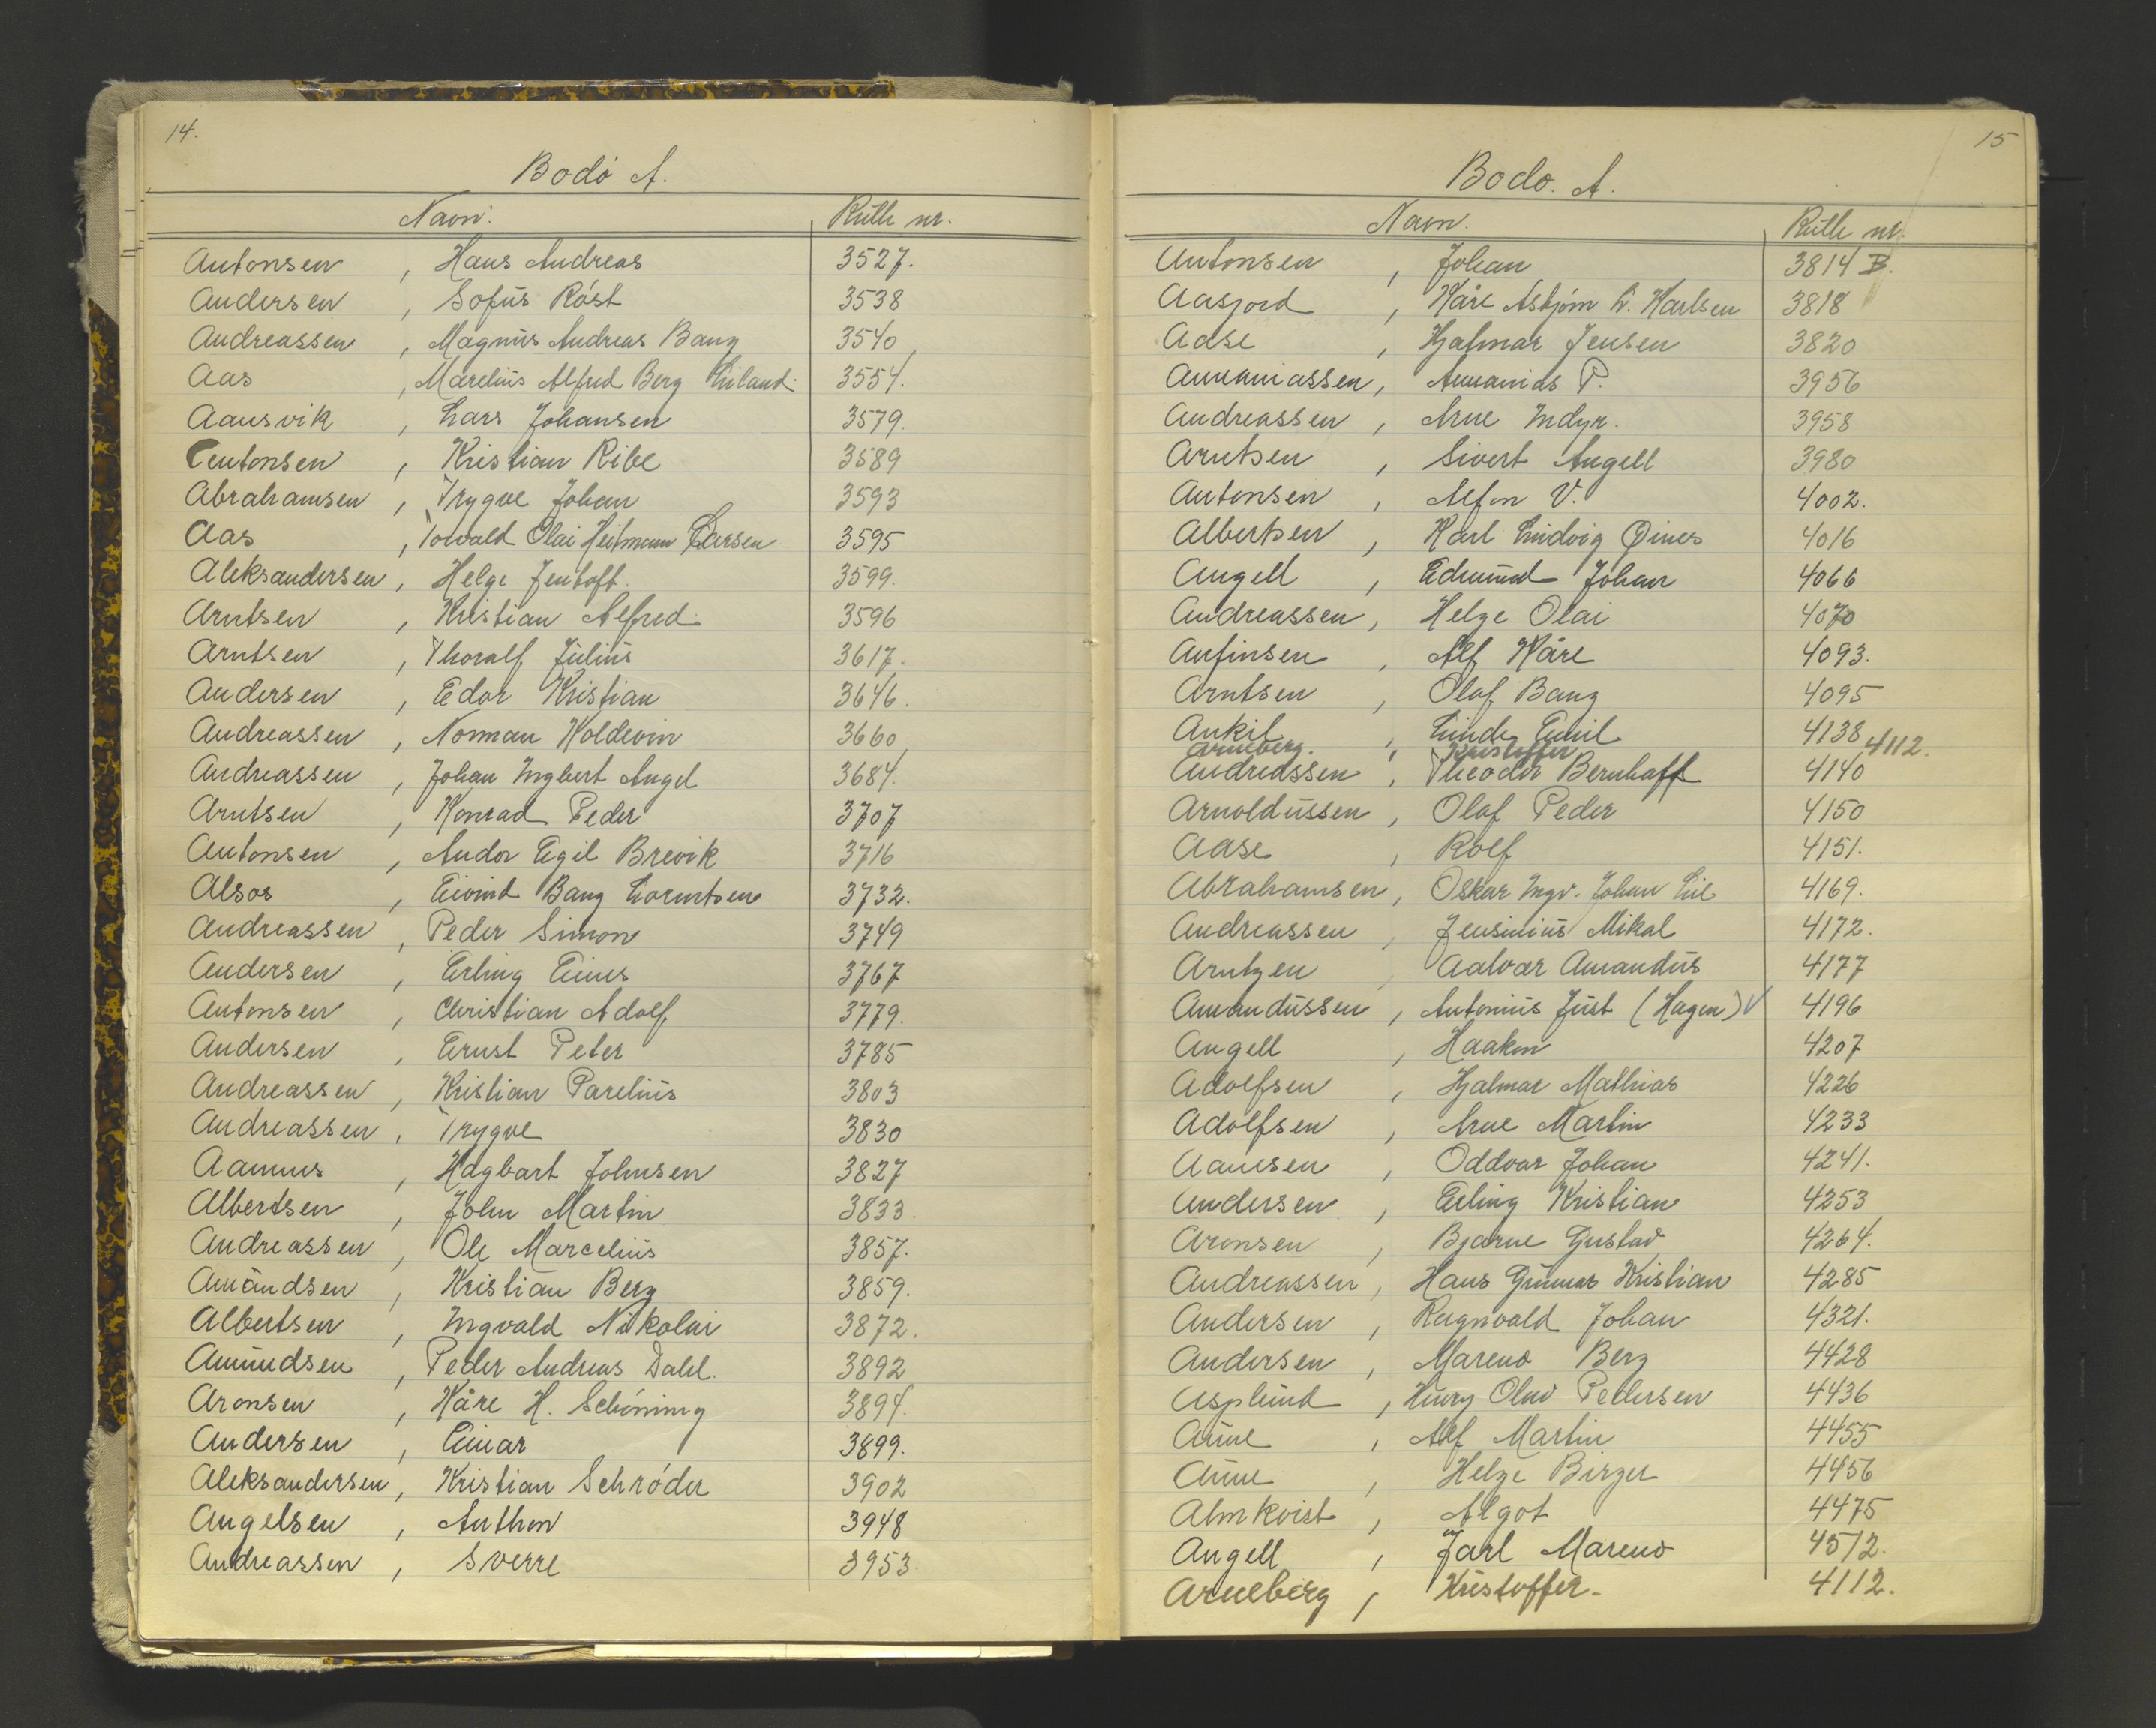 14.
Bodö A.
Navn. Rulle nr.
Antonsen, Hans Andreas 3527.
Andersen, Sofus Röst 3538
Andreassen, Magnus Andreas Bang 3540
Aas, Marelius Alfred Berg 3554.
Aansvik, Lars Johansen 3579.
Antonsen, Kristian Ribe 3589
Abrahamsen, Trygve Johan 3593
Aas, Torvald Olai Heitmann Larsen 3595
Aleksandersen, Helge Jentoft. 3599.
Arntsen, Kristian Alfred 3596
Arntsen, Thoralf Julius 3617.
Andersen, Edor Kristian 3646.
Andreassen, Norman Koldevin 3660
Andreassen, Johan Ingbert Angel 3684.
Arntsen, Konrad Peder 3707
Antonsen, Andor Egil Brevik 3716
Alsos, Eivind Bang Lorentsen 3732.
Andreassen, Peder Simon 3749
Andersen, Erling Eines 3767
Antonsen, Christian Adolf 3779.
Andersen, Ernst Peter 3785
Andreassen, Kristian Parelius 3803
Andreassen, Trygve 3830
Aamnes, Hagbart Johnsen 3827
Albertsen, John Martin 3833.
Andreassen, Ole Marcelius 3857.
Amandsen, Kristian Berg 3859.
Albertsen, Ingvald Nikolai 3872.
Amundsen, Peder Andreas Dahl. 3892
Aronsen, Kåre H. Schöning 3894.
Andersen, Einar 3899.
Aleksandersen, Kristian Schröder 3902
Angelsen, Anthon 3948
Andreassen, Sverre 3953.
15
Bodo. A.
Navn. Rulle nr.
Antonsen, Johan 3814 B.
Aasjord, Kåre Asbjörn L. Karlsen 3818
Aase, Hjalmar Jensen 3820
Annaniassen, Annanias P. 3956
Andreassen, Arne Indyr. 3958
Arntsen, Sivert Angell 3980
Antonsen, Alfon V. 4002.
Albertsen, Karl Ludvig Øines 4016
Angell, Edmund Johan 4066
Andreassen, Helge Olai 4070
Anfinsen, Alf Kåre 4093.
Arntsen, Olaf Bang 4095
Ankil, Linde Emil 4138
Arneberg. , Kristoffer 4112.
Andreassen, Theodor Bernhoff 4140
Arnoldussen, Olaf Peder 4150
Aase, Rolf 4151.
Abrahamsen, Oskar Ingv. Johan Lie 4169.
Andreassen, Jensinius Mikal 4172.
Arntzen, Aalvar Amandus 4177
Amandussen, Antonius Just (Hagen) ✓ 4196
Angell, Haakon 4207
Adolfsen, Hjalmar Mathias 4226
Adolfsen, Arne Martin 4233
Aanesen, Oddvar Johan 4241.
Andersen, Erling Kristian 4253
Aronsen, Bjarne Gustav 4264.
Andreassen, Hans Gunnar Kristian 4285
Andersen, Ragnvald Johan 4321.
Andersen, Mareno Berg 4428
Asplund, Henry Olav Pedersen 4436
Aune, Alf Martin 4455
Aune, Helge Birger 4456
Almkvist, Algot 4475
Angell, Jarl Mareno 4512.
Arneberg, Kristoffer. 4112.